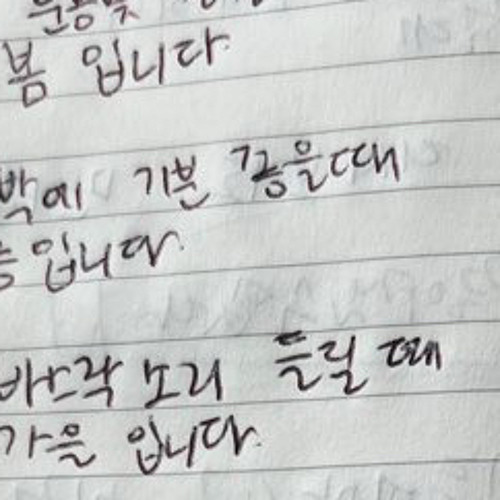 봄 입니다.
박에 기분 좋을때
입니다.
바스락 소리 들릴 때
가을 입니다.